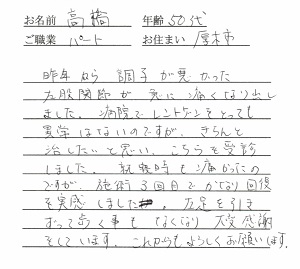 お名前 高橋 年齢 50代
ご職業 パート お住まい 厚木市
昨年から 調子が悪かった
左股関節が 急に痛くなり出し
ました。病院でレントゲンをとっても
異常はないのですが、きちんと
治したいと思い、こちらを受診
しました。就寝時も痛かったの
ですが、施術3回目でかなり回復
を実感しました。左足を引き
ずって歩く事もなくなり 大変感謝
をしています。これからもよろしくお願いします。